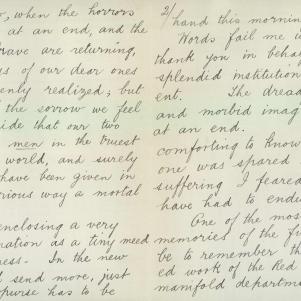 o, when the horrors
at an end, and the
rave are returning,
s of our dear ones
enly realized; but
the sorrow we feel
ide that our two
men in the truest
world, and surely
have been given in
rious way a mortal
enclosing a very
nation as a tiny meed
ess. In the new
d send more, just
purse has to be
2/ hand this mornin
Words fail me i
thank you in behal
splendid institution
ent. The dread
and morbid imag
at an end.
comforting to know
one was spared
suffering I feared
have had to endu
One of the mos
memories of the fu
be to remember th
ed work of the Red
manifold departme